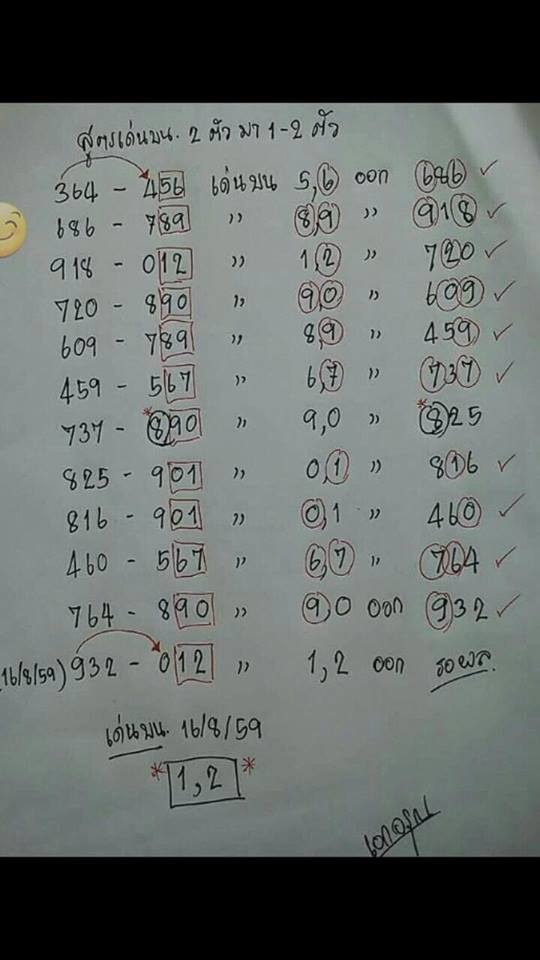 สูตรเด่นบน. 2 ตัว มา 1-2 ตัว
364 - 456 เด่นบน 5,6 ออก 686 ✓
686 - 789 " 8,9 " 918 ✓
918 - 012 " 1,2 " 720 ✓
720 - 890 " 9,0 " 609 ✓
609 - 789 " 8,9 " 459 ✓
459 - 567 " 6,7 " 737 ✓
737 - *890 " 9,0 " *825
825 - 901 " 0,1 " 816 ✓
816 - 901 " 0,1 " 460 ✓
460 - 567 " 6,7 " 764 ✓
764 - 890 " 9,0 ออก 932 ✓
(16/8/59) 932 - 012 " 1,2 ออก รอผล.
เด่นบน. 16/8/59
* 1,2 *